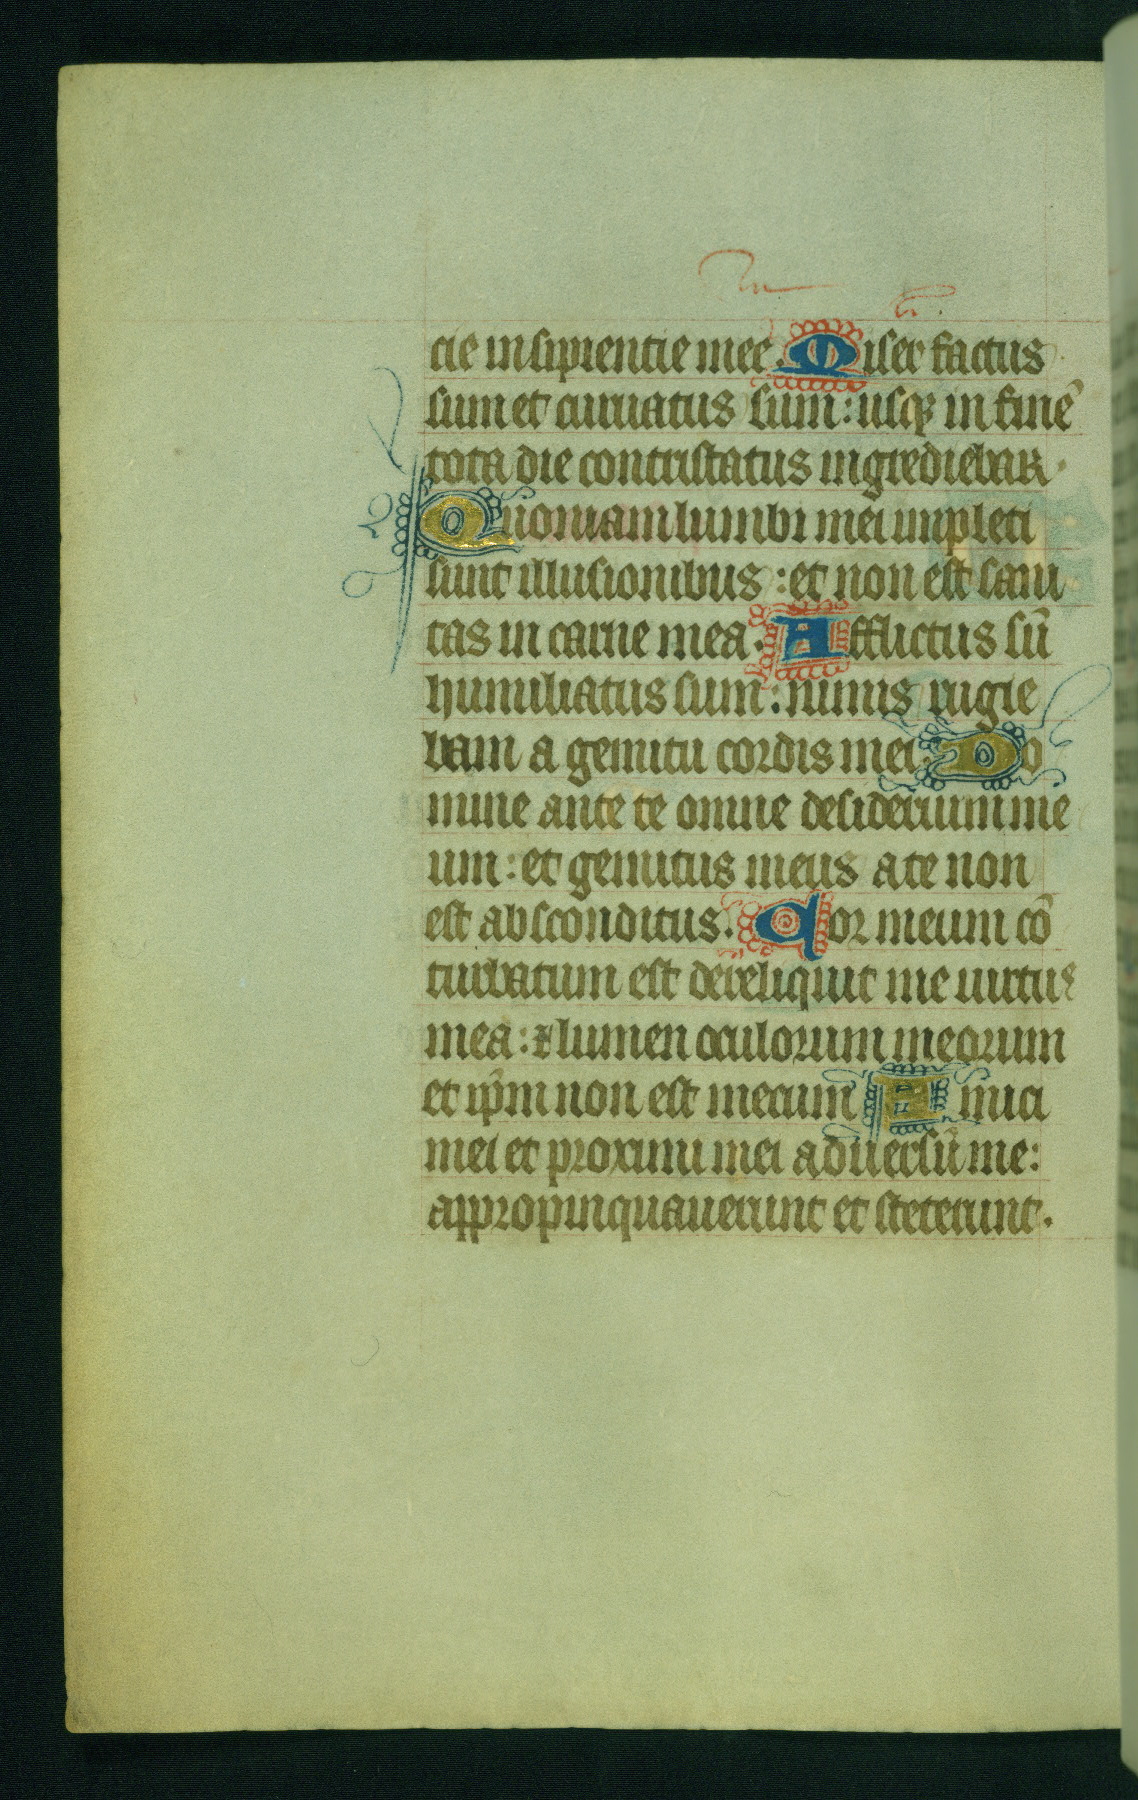 cie insipientie mee. Miser factus
sum et curuatus sum: usqꝫ in finē
tota die contristatus ingrediebar.
Quoniam lumbi mei impleti
sunt illusionibus: et non est sani
tas in carne mea. Afflictus sū
humiliatus sum: nimis rugie
bam a gemitu cordis mei. Do
mine ante te omne desiderium me
um: et gemitus meus a te non
est absconditus. Cor meum cō
turbatum est dereliquit me uirtus
mea: ⁊ lumen oculorum meorum
et ip̄m non est mecum Amici
mei et proximi mei aduersū me:
appropinquauerunt et steterunt.